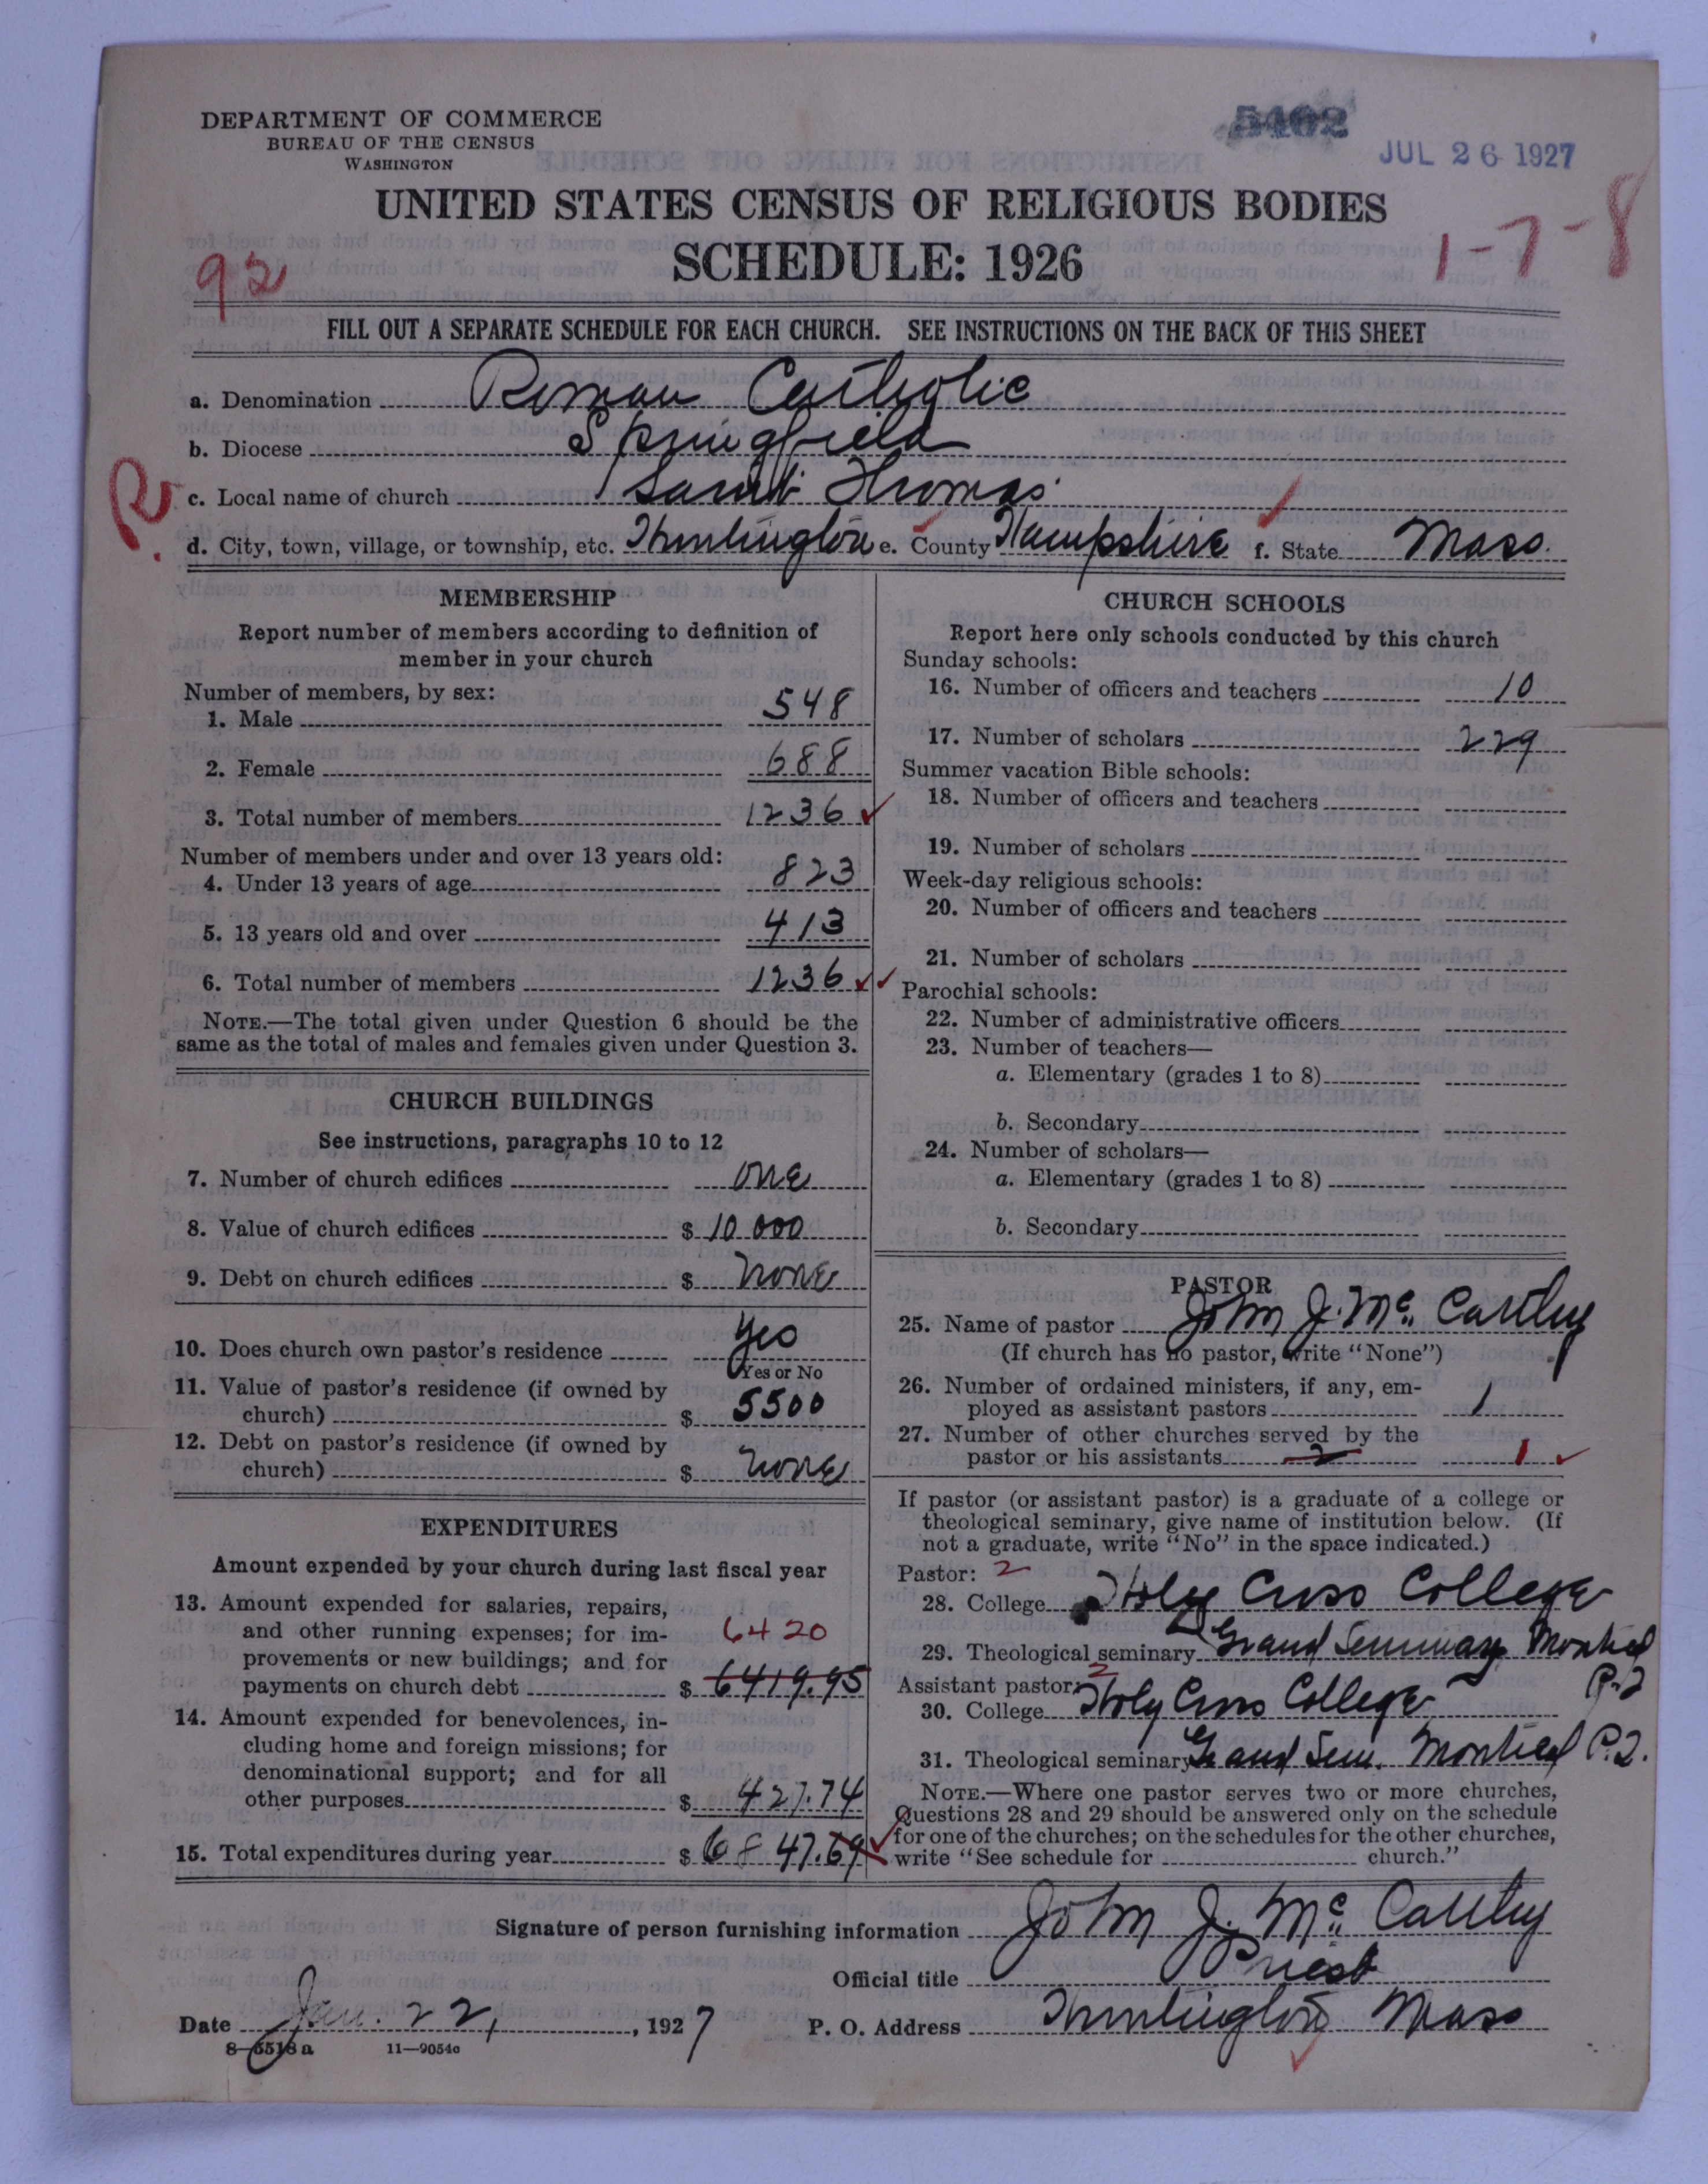 DEPARTMENT OF COMMERCE
BUREAU OF THE CENSUS
WASHINGTON
5402
JUL 26 1927
UNITED STATES CENSUS OF RELIGIOUS BODIES
SCHEDULE: 1926
92
1-7-8
FILL OUT A SEPARATE SCHEDULE FOR EACH CHURCH. SEE INSTRUCTIONS ON THE BACK OF THIS SHEET
a. Denomination Roman Catholic
b. Diocese Springfield
R.
c. Local name of church Saint Thomas
d. City, town, village, or township, etc. Huntington e. County Hampshire f. State Mass.
MEMBERSHIP
Report number of members according to definition of
member in your church
Number of members, by sex:
1. Male 548
2. Female 688
3. Total number of members 1236 ✓
Number of members under and over 13 years old:
4. Under 13 years of age 823
5. 13 years old and over 413
6. Total number of members 1236 ✓✓
NOTE.—The total given under Question 6 should be the
same as the total of males and females given under Question 3.
CHURCH BUILDINGS
See instructions, paragraphs 10 to 12
7. Number of church edifices one
8. Value of church edifices $ 10 000
9. Debt on church edifices $ none
10. Does church own pastor's residence Yes
Yes or No
11. Value of pastor's residence (if owned by
church) $ 5500
12. Debt on pastor's residence (if owned by
church) $ none
EXPENDITURES
Amount expended by your church during last fiscal year
13. Amount expended for salaries, repairs,
and other running expenses; for im-
6420
provements or new buildings; and for
payments on church debt $ 6419.95
14. Amount expended for benevolences, in-
cluding home and foreign missions; for
denominational support; and for all
other purposes $ 427.74
15. Total expenditures during year $ 6847.69 ✓
CHURCH SCHOOLS
Report here only schools conducted by this church
Sunday schools:
16. Number of officers and teachers 10
17. Number of scholars 229
Summer vacation Bible schools:
18. Number of officers and teachers
19. Number of scholars
Week-day religious schools:
20. Number of officers and teachers
21. Number of scholars
Parochial schools:
22. Number of administrative officers
23. Number of teachers—
a. Elementary (grades 1 to 8)
b. Secondary
24. Number of scholars—
a. Elementary (grades 1 to 8)
b. Secondary
PASTOR
25. Name of pastor John J. McCarthy
(If church has no pastor, write "None")
26. Number of ordained ministers, if any, em-
ployed as assistant pastors 1
27. Number of other churches served by the
pastor or his assistants 2 1 ✓
If pastor (or assistant pastor) is a graduate of a college or
theological seminary, give name of institution below. (If
not a graduate, write "No" in the space indicated.)
Pastor: 2
28. College Holy Cross College
29. Theological seminary Grand Seminary Montreal
P.2
Assistant pastor: 2
30. College Holy Cross College
31. Theological seminary Grand Sem. Montreal P.2.
NOTE.—Where one pastor serves two or more churches,
Questions 28 and 29 should be answered only on the schedule
for one of the churches; on the schedules for the other churches,
write "See schedule for church."
Signature of person furnishing information John J. McCarthy
Official title Priest
Date Jan. 22, 1927
P. O. Address Huntington Mass
8—5518a
11—9054c